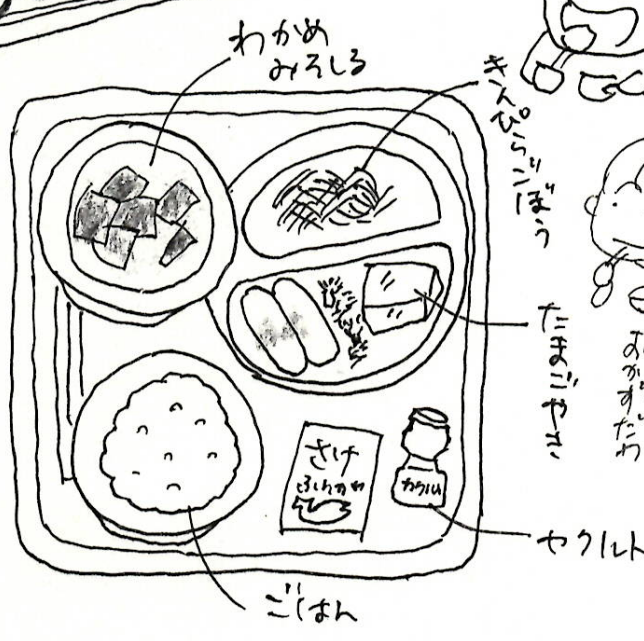 わかめ
みそしる
きんぴらごぼう
たまごやき
おかずだわ
さけ
ふりかけ
ヤクルト
ごはん